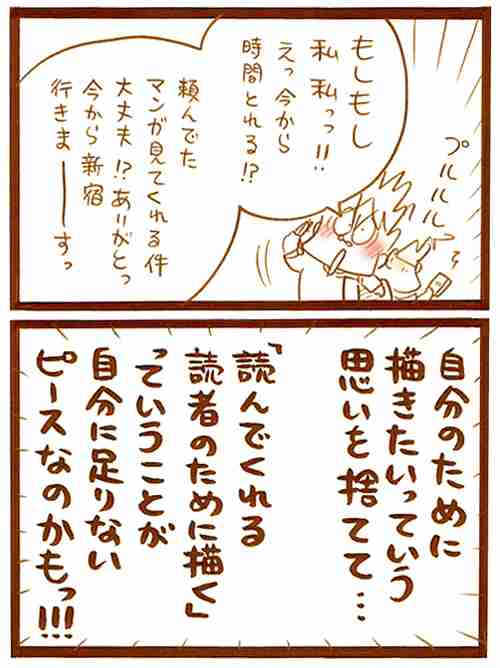 もしもし
私 私っっ!!
えっ今から
時間とれる!?
頼んでた
マンガ見てくれる件
大丈夫!?ありがとっ
今から新宿
行きまーーすっ
プルルルっ
自分のために
描きたいっていう
思いを捨てて…
「読んでくれる
読者のために描く」
っていうことが
自分に足りない
ピースなのかもっ!!!